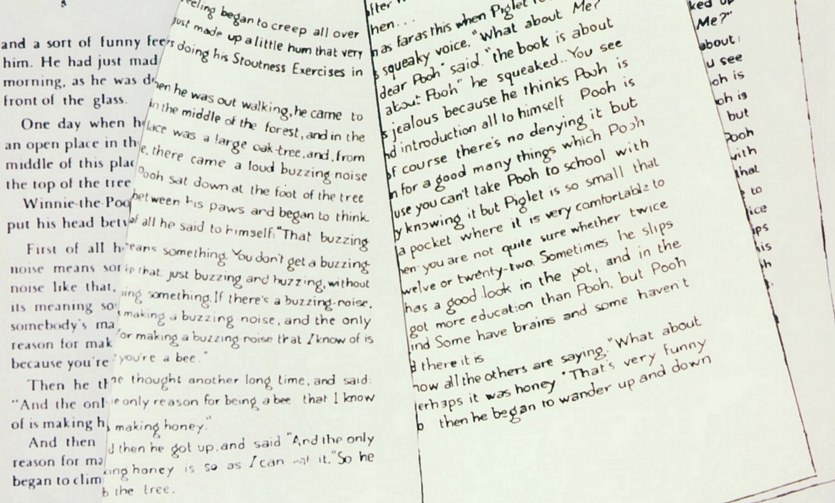 and a sort of funny fee
him. He had just mad
morning, as he was d
front of the glass.
One day when h
an open place in th
middle of this plac
the top of the tree
Winnie-the-Poo
put his head betw
First of all h
noise means so
noise like that,
its meaning so
somebody's ma
reason for mak
because you're
Then he th
"And the onl
of is making h
And then
reason for ma
began to clim
eeling began to creep all over
just made up a little hum that very
s doing his Stoutness Exercises in
hen he was out walking, he came to
in the middle of the forest, and in the
lace was a large oak-tree, and, from
e, there came a loud buzzing noise
Pooh sat down at the foot of the tree
between his paws and began to think.
of all he said to himself: "That buzzing
eans something. You don't get a buzzing
that, just buzzing and buzzing, without
ing something. If there's a buzzing-noise,
making a buzzing noise, and the only
for making a buzzing noise that I know of is
you're a bee."
he thought another long time, and said:
e only reason for being a bee that I know
making honey."
d then he got up, and said "And the only
ing honey is so as I can it." So he
b the tree.
fter
hen...
has far as this when Piglet
squeaky voice. "What about Me?"
dear Pooh" said. "the book is about
about Pooh" he squeaked.. You see
s jealous because he thinks Pooh is
nd introduction all to himself Pooh is
of course there's no denying it but
n for a good many things which Pooh
use you can't take Pooh to school with
y knowing it but Piglet is so small that
a pocket where it is very comfortable to
en you are not quite sure whether twice
welve or twenty-two. Sometimes he slips
has a good look in the pot, and in the
got more education than Pooh, but Pooh
ind Some have brains and some haven't
d there it is
now all the others are saying. "What about
erhaps it was honey "That's very funny
then he began to wander up and down
ked up
Me?"
about
u see
oh is
oh is
but
Pooh
with
that
to
ice
ips
his
h